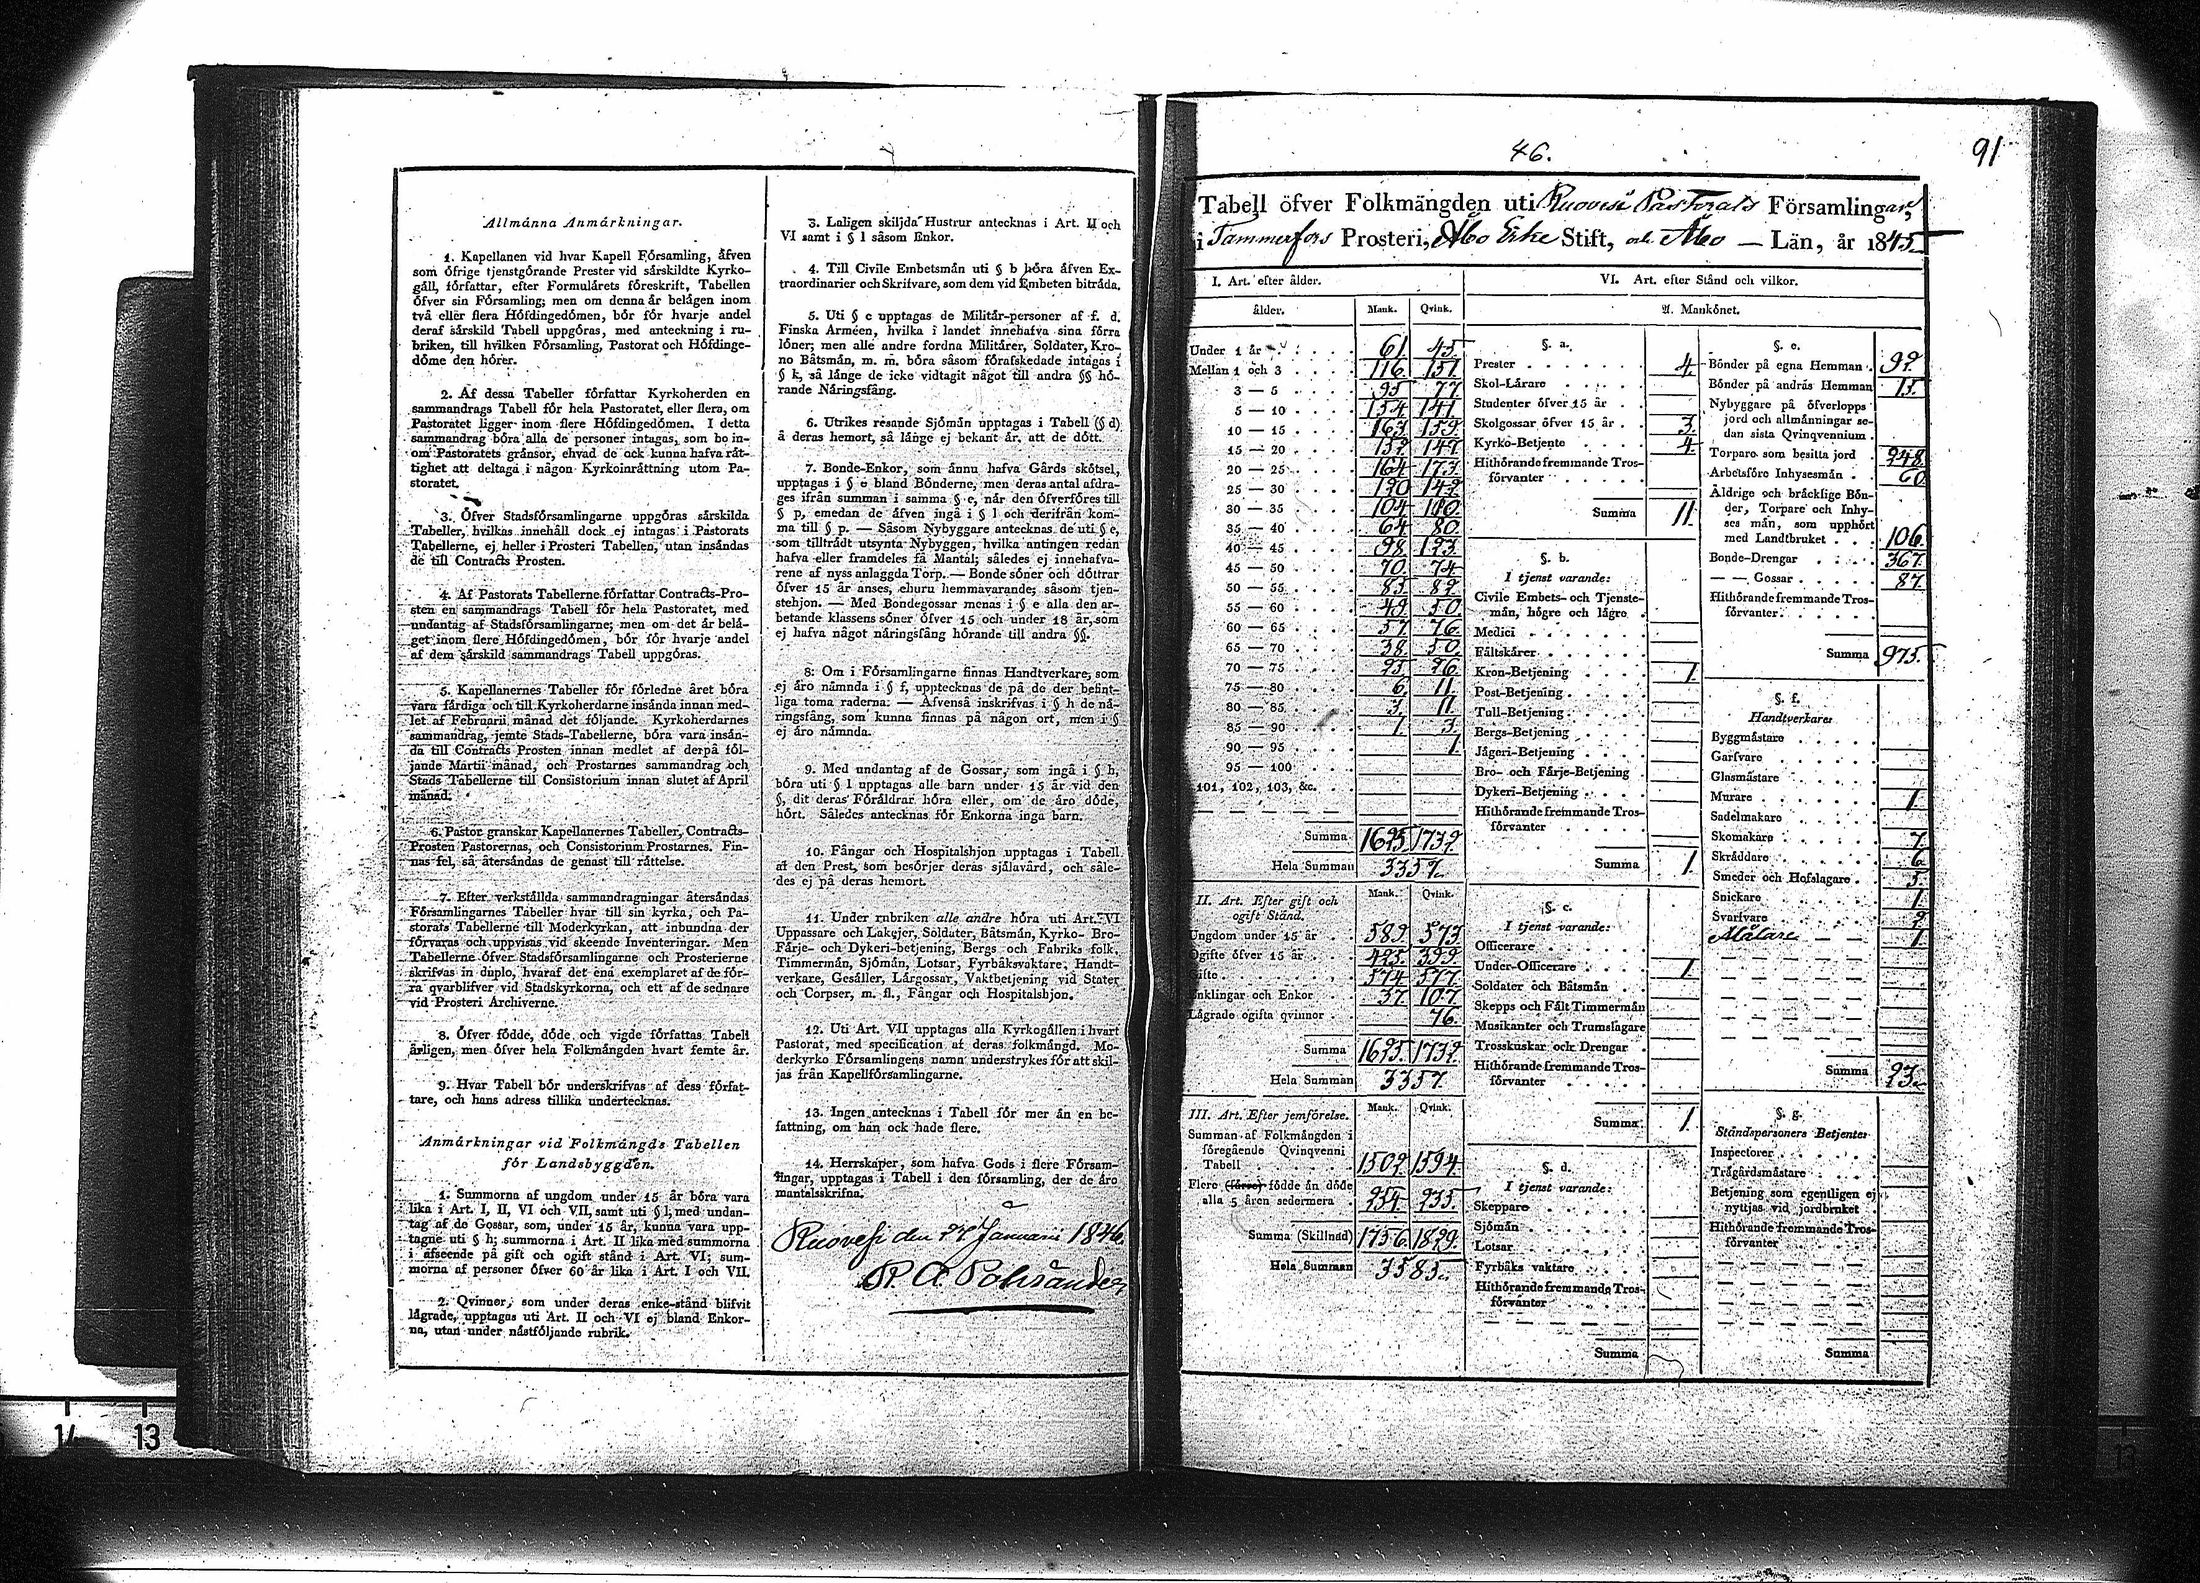 Allmänna Anmärkningar.
1. Kapellanen vid hvar Kapell Församling, äfven
som öfrige tjenstgörande Prester vid särskildte Kyrko-
gäll, författar, efter Formulärets föreskrift, Tabellen
öfver sin Församling; men om denna är belägen inom
två eller flera Höfdingedömen, bör för hvarje andel
deraf särskild Tabell uppgöras, med anteckning i ru-
briken, till hvilken Församling, Pastorat och Höfdinge-
döme den hörer.
2. Af dessa Tabeller författar Kyrkoherden en
sammandrags Tabell för hela Pastoratet, eller flera, om
Pastoratet ligger inom flere Höfdingedömen. I detta
sammandrag böra alla de personer intagas, som bo in-
om Pastoratets gränsor, ehvad de ock kunna hafva rät-
tighet att deltaga i någon Kyrkoinrättning utom Pa-
storatet.
3. Öfver Stadsförsamlingarne uppgöras särskilda
Tabeller, hvilkas innehåll dock ej intagas i Pastorats
Tabellerne, ej heller i Prosteri Tabellen, utan insändas
de till Contracts Prosten.
4. Af Pastorats Tabellerne författar Contracts-Pro-
sten en sammandrags Tabell för hela Pastoratet, med
undantag af Stadsförsamlingarne; men om det är belä-
get inom flere Höfdingedömen, bör för hvarje andel
af dem särskild sammandrags Tabell uppgöras.
5. Kapellanernes Tabeller för förledne året böra
vara färdiga och till Kyrkoherdarne insända innan med-
let af Februarii månad det följande. Kyrkoherdarnes
sammandrag, jemte Stads-Tabellerne, böra vara insän-
da till Contracts Prosten innan medlet af derpå föl-
jande Martii månad, och Prostarnes sammandrag och
Stads Tabellerne till Consistorium innan slutet af April
månad.
6. Pastor granskar Kapellanernes Tabeller, Contracts-
Prosten Pastorernas, och Consistorium Prostarnes. Fin-
nas fel, så återsändas de genast till rättelse.
7. Efter verkställda sammandragningar återsändas
Församlingarnes Tabeller hvar till sin kyrka, och Pa-
storats Tabellerne till Moderkyrkan, att inbundna der
förvaras och uppvisas vid skeende Inventeringar. Men
Tabellerne öfver Stadsförsamlingarne och Prosterierne
skrifvas in duplo, hvaraf det ena exemplaret af de för-
ra qvarblifver vid Stadskyrkorna, och ett af de sednare
vid Prosteri Archiverne.
8. Öfver födde, döde och vigde författas Tabell
årligen, men öfver hela Folkmängden hvart femte år.
9. Hvar Tabell bör underskrifvas af dess förfat-
tare, och hans adress tillika undertecknas.
Anmärkningar vid Folkmängds Tabellen
för Landsbyggden.
1. Summorna af ungdom under 15 år böra vara
lika i Art. I, II, VI och VII, samt uti § l, med undan-
tag af de Gossar, som, under 15 år, kunna vara upp-
tagne uti § h; summorna i Art. II lika med summorna
i afseende på gift och ogift stånd i Art. VI; sum-
morna af personer öfver 60 år lika i Art. I och VII.
2. Qvinnor, som under deras enke-stånd blifvit
lägrade, upptagas uti Art. II och VI ej bland Enkor-
na, utan under nästföljande rubrik.
3. Laligen skiljda Hustrur antecknas i Art. II och
VI samt i § l såsom Enkor.
4. Till Civile Embetsmän uti § b höra äfven Ex-
traordinarier och Skrifvare, som dem vid Embeten biträda.
5. Uti § c upptagas de Militär-personer af f. d.
Finska Arméen, hvilka i landet innehafva sina förra
löner; men alle andre fordna Militärer, Soldater, Kro-
no Båtsmän, m. m. böra såsom förafskedade intagas i
§ k, så länge de icke vidtagit något till andra §§ hö-
rande Näringsfång.
6. Utrikes resande Sjömän upptagas i Tabell (§ d)
å deras hemort, så länge ej bekant är, att de dött.
7. Bonde-Enkor, som ännu hafva Gårds skötsel,
upptagas i § e bland Bönderne, men deras antal afdra-
ges ifrån summan i samma § e, när den öfverföres till
§ p, emedan de äfven ingå i § l och derifrån kom-
ma till § p. — Såsom Nybyggare antecknas de uti § e,
som tillträdt utsynta Nybyggen, hvilka antingen redan
hafva eller framdeles få Mantal; således ej innehafva-
rene af nyss anlaggda Torp. — Bonde söner och döttrar
öfver 15 år anses, ehuru hemmavarande, såsom tjen-
stehjon. — Med Bondegossar menas i § e alla den ar-
betande klassens söner öfver 15 och under 18 år, som
ej hafva något näringsfång hörande till andra §§.
8. Om i Församlingarne finnas Handtverkare, som
ej äro nämnda i § f, upptecknas de på de der befint-
liga toma raderna. — Äfvenså inskrifvas i § h de nä-
ringsfång, som kunna finnas på någon ort, men i §
ej äro nämnda.
9. Med undantag af de Gossar, som ingå i § h,
böra uti § l upptagas alle barn under 15 år vid den
§, dit deras Föräldrar höra eller, om de äro döde,
hört. Således antecknas för Enkorna inga barn.
10. Fångar och Hospitalshjon upptagas i Tabell
af den Prest, som besörjer deras själavård, och såle-
des ej på deras hemort.
11. Under rubriken alle andre höra uti Art. VI
Uppassare och Lakejer, Soldater, Båtsmän, Kyrko- Bro-
Färje- och Dykeri-betjening, Bergs och Fabriks folk.
Timmermän, Sjömän, Lotsar, Fyrbåksvaktare, Handt-
verkare, Gesäller, Lärgossar, Vaktbetjening vid Stater
och Corpser, m. fl., Fångar och Hospitalshjon.
12. Uti Art. VII upptagas alla Kyrkogällen i hvart
Pastorat, med specification af deras folkmängd. Mo-
derkyrko Församlingens namn understrykes för att skil-
jas från Kapellförsamlingarne.
13. Ingen antecknas i Tabell för mer än en be-
fattning, om han ock hade flere.
14. Herrskaper, som hafva Gods i flere Försam-
lingar, upptagas i Tabell i den församling, der de äro
mantalsskrifna.
Ruovesi den 27 Januarii 1846.
46.
91
Tabell öfver Folkmängden uti Ruovesi Pastorats Församlingar,
i Tammerfors Prosteri, Åbo Erke Stift, och Åbo — Län, år 1845.
I. Art. efter ålder.
ålder. Mank. Qvink.
Under 1 år 61. 45.
Mellan 1 och 3 116. 151.
3 — 5 95. 77.
5 — 10 154. 141.
10 — 15 163. 159.
15 — 20 152. 147.
20 — 25 164. 173.
25 — 30 120. 142.
30 — 35 104. 100.
35 — 40 64. 80.
40 — 45 98. 123.
45 — 50 70. 74.
50 — 55 85. 82.
55 — 60 49. 50.
60 — 65 57. 76.
65 — 70 38. 50.
70 — 75 25. 26.
75 — 80 6. 11.
80 — 85 3. 11.
85 — 90 1. 3.
90 — 95 1.
95 — 100
101, 102, 103, &c.
Summa 1625. 1732.
Hela Summan 3357.
II. Art. Efter gift och
ogift Stånd. Mank. Qvink.
Ungdom under 15 år 589. 573.
Ogifte öfver 15 år 425. 399.
Gifte 574. 577.
Enklingar och Enkor 37. 107.
Lägrade ogifta qvinnor 76.
Summa 1625. 1732.
Hela Summan 3357.
III. Art. Efter jemförelse. Mank. Qvink.
Summan af Folkmängden i
föregående Qvinqvenni
Tabell 1502. 1594.
Flere (färre) födde än döde
alla 5 åren sedermera 254. 235.
Summa (Skillnad) 1756. 1829.
Hela Summan 3585.
VI. Art. efter Stånd och vilkor.
A. Mankönet.
§. a.
Prester 4.
Skol-Lärare
Studenter öfver 15 år
Skolgossar öfver 15 år 3.
Kyrko-Betjente 4.
Hithörande fremmande Tros-
förvanter
Summa 11.
§. b.
I tjenst varande:
Civile Embets- och Tjenste-
män, högre och lägre
Medici
Fältskärer
Kron-Betjening 1.
Post-Betjening
Tull-Betjening
Bergs-Betjening
Jägeri-Betjening
Bro- och Färje-Betjening
Dykeri-Betjening
Hithörande fremmande Tros-
förvanter
Summa 1.
§. c.
I tjenst varande:
Officerare
Under-Officerare 1.
Soldater och Båtsmän
Skepps och Fält Timmermän
Musikanter och Trumslagare
Trosskuskar och Drengar
Hithörande fremmande Tros-
förvanter
Summa 1.
§. d.
I tjenst varande:
Skeppare
Sjömän
Lotsar
Fyrbåks vaktare
Hithörande fremmande Tros-
förvanter
Summa
§. e.
Bönder på egna Hemman 92.
Bönder på andras Hemman 15.
Nybyggare på öfverlopps
jord och allmänningar se-
dan sista Qvinqvennium
Torpare som besitta jord 248.
Arbetsföre Inhysesmän 60.
Åldrige och bräcklige Bön-
der, Torpare och Inhy-
ses män, som upphört
med Landtbruket 106.
Bonde-Drengar 367.
— — Gossar 87.
Hithörande fremmande Tros-
förvanter
Summa 975.
§. f.
Handtverkare
Byggmästare
Garfvare
Glasmästare
Murare 1.
Sadelmakare
Skomakare 7.
Skräddare 6.
Smeder och Hofslagare 5.
Snickare 1.
Svarfvare 2.
Målare 1.
Summa 23.
§. g.
Ståndspersoners Betjenter
Inspectorer
Trägårdsmästare
Betjening som egentligen ej
nyttjas vid jordbruket
Hithörande fremmande Tros-
förvanter
Summa
14 13
13